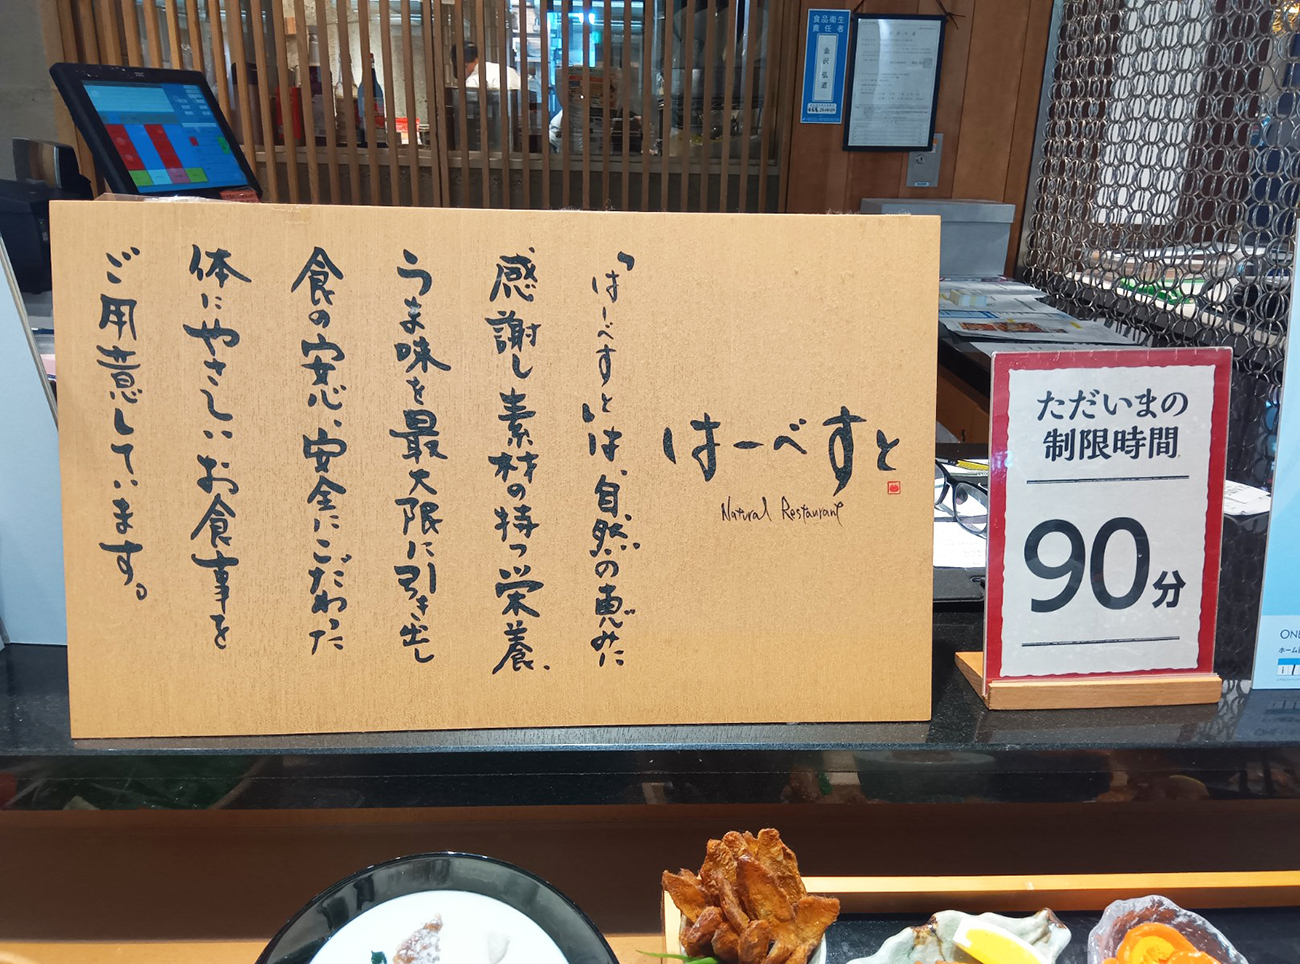 はーべすと
Natural Restaurant
「はーべすと」は、自然の恵みに
感謝し素材の持つ栄養、
うま味を最大限に引き出し
食の安心、安全にこだわった
体にやさしいお食事を
ご用意しています。
ただいまの
制限時間
90分
食品衛生
責任者